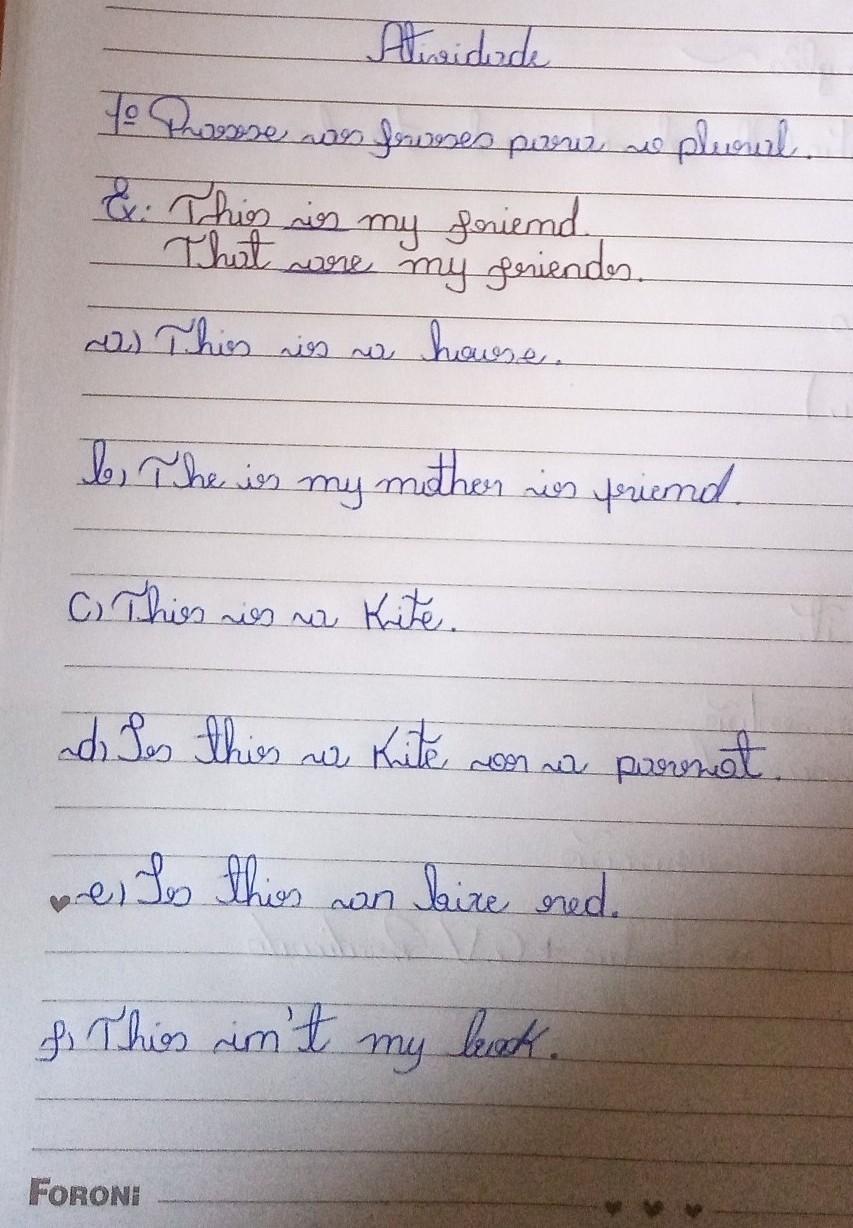 Atividade
1º Passe as frases para o plural.
Ex: This is my friend.
That are my friends.
a) This is a house.
b) The is my mother is friend.
c) This is a Kite.
d) Is this a Kite or a parrot.
e) Is this an red.
f) This isn't my book.
FORONI